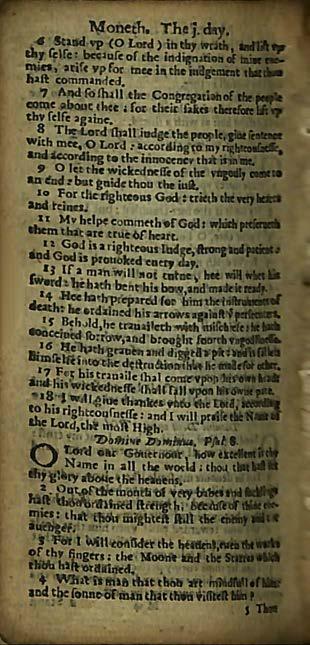 Moneth. The j. day.
6 Stand vp (O Lord) in thy wrath, and lift vp
thy selfe: because of the indignation of mine ene-
mies, arise vp for mee in the iudgement that thou
hast commanded.
7 And so shall the Congregation of the people
come about thee : for their sakes therefore lift vp
thy selfe againe.
8 The Lord shall iudge the people, giue sentence
with mee, O Lord : according to my righteousnesse,
and according to the innocency that is in me.
9 O let the wickednesse of the vngodly come to
an end: but guide thou the iust.
10 For the righteous God : trieth the very hearts
and reines.
11 My helpe commeth of God: which preserueth
them that are true of heart.
12 God is a righteous Iudge, strong and patient :
and God is prouoked euery day.
13 If a man will not turne, hee will whet his
sword: he hath bent his bow, and made it ready.
14 Hee hath prepared for him the instruments of
death: he ordained his arrows against ẏ persecuters.
15 Behold, he trauaileth with mischiefe: he hath
conceiued sorrow, and brought foorth vngodlinesse.
16 He hath grauen and digged a pit: and is fallen
himselfe into the destruction that he made for other.
17 For his trauaile shal come vpon his own head:
and his wickednesse shall fall vpon his owne pate.
18 I will giue thankes vnto the Lord, according
to his righteousnesse: and I will praise the Name of
the Lord, the most High.
Domine Dominus. Psal. 8.
O Lord our Gouernour, how excellent is thy
Name in all the world : thou that hast set
thy glory aboue the heauens.
2 Out of the mouth of very babes and sucklings
hast thou ordained strength, because of thine ene-
mies: that thou mightest still the enemy and the
auenger.
3 For I will consider the heauens, euen the works
of thy fingers: the Moone and the Starres which
thou hast ordained.
4 What is man that thou art mindfull of him:
and the sonne of man that thou visitest him ?
5 Thou